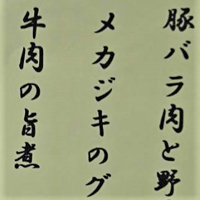 豚バラ肉と野
メカジキのグ
牛肉の旨煮